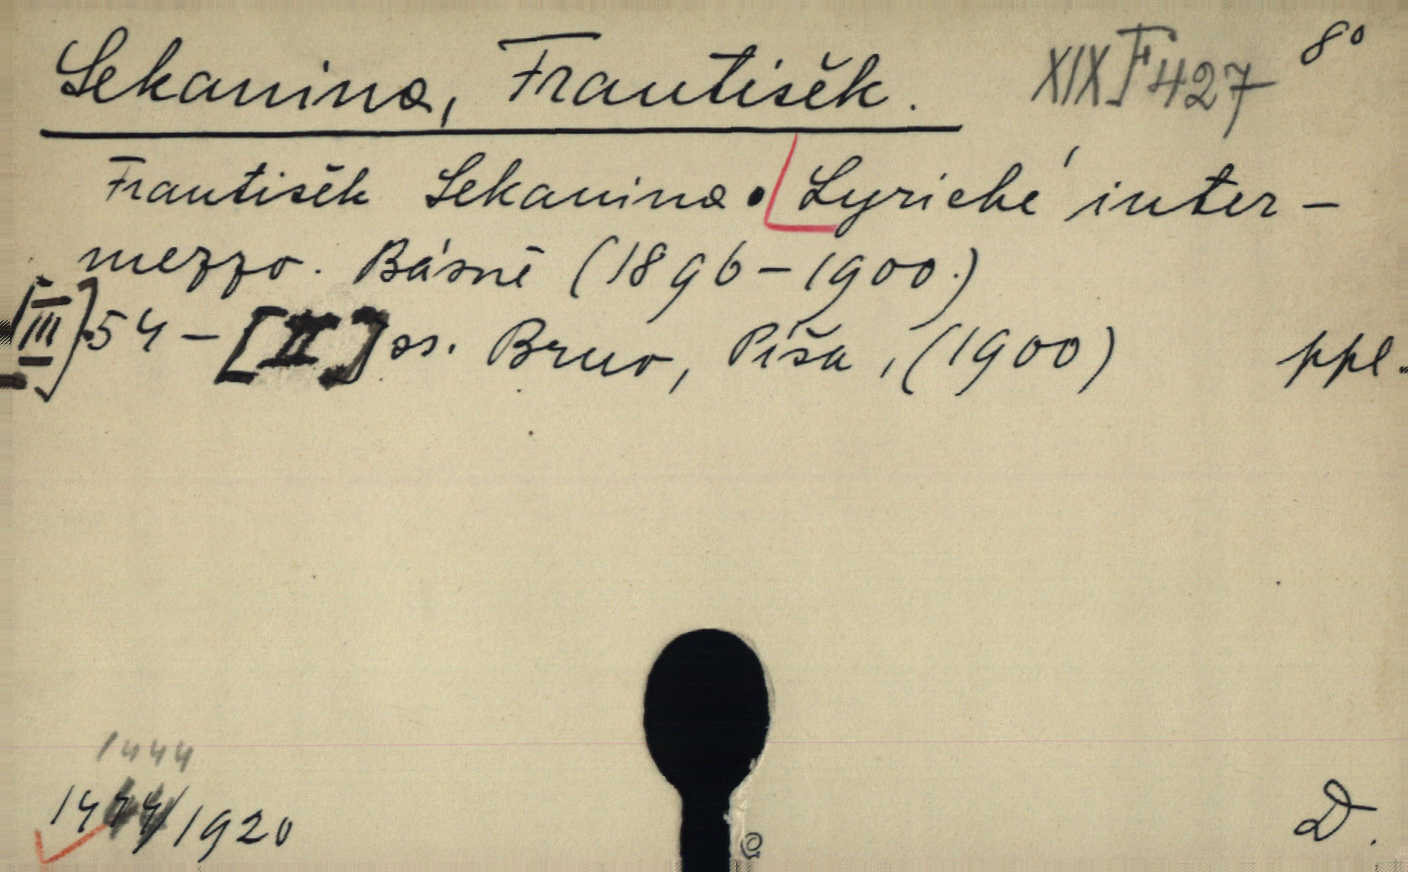 Sekanina, František. XIX F 427 8°
František Sekanina. Lyrické inter-
mezzo. Básně (1896-1900.)
[III] 54 - [II] ss. Brno, Píša, (1900) ppl.
1444
1444/1920 D.